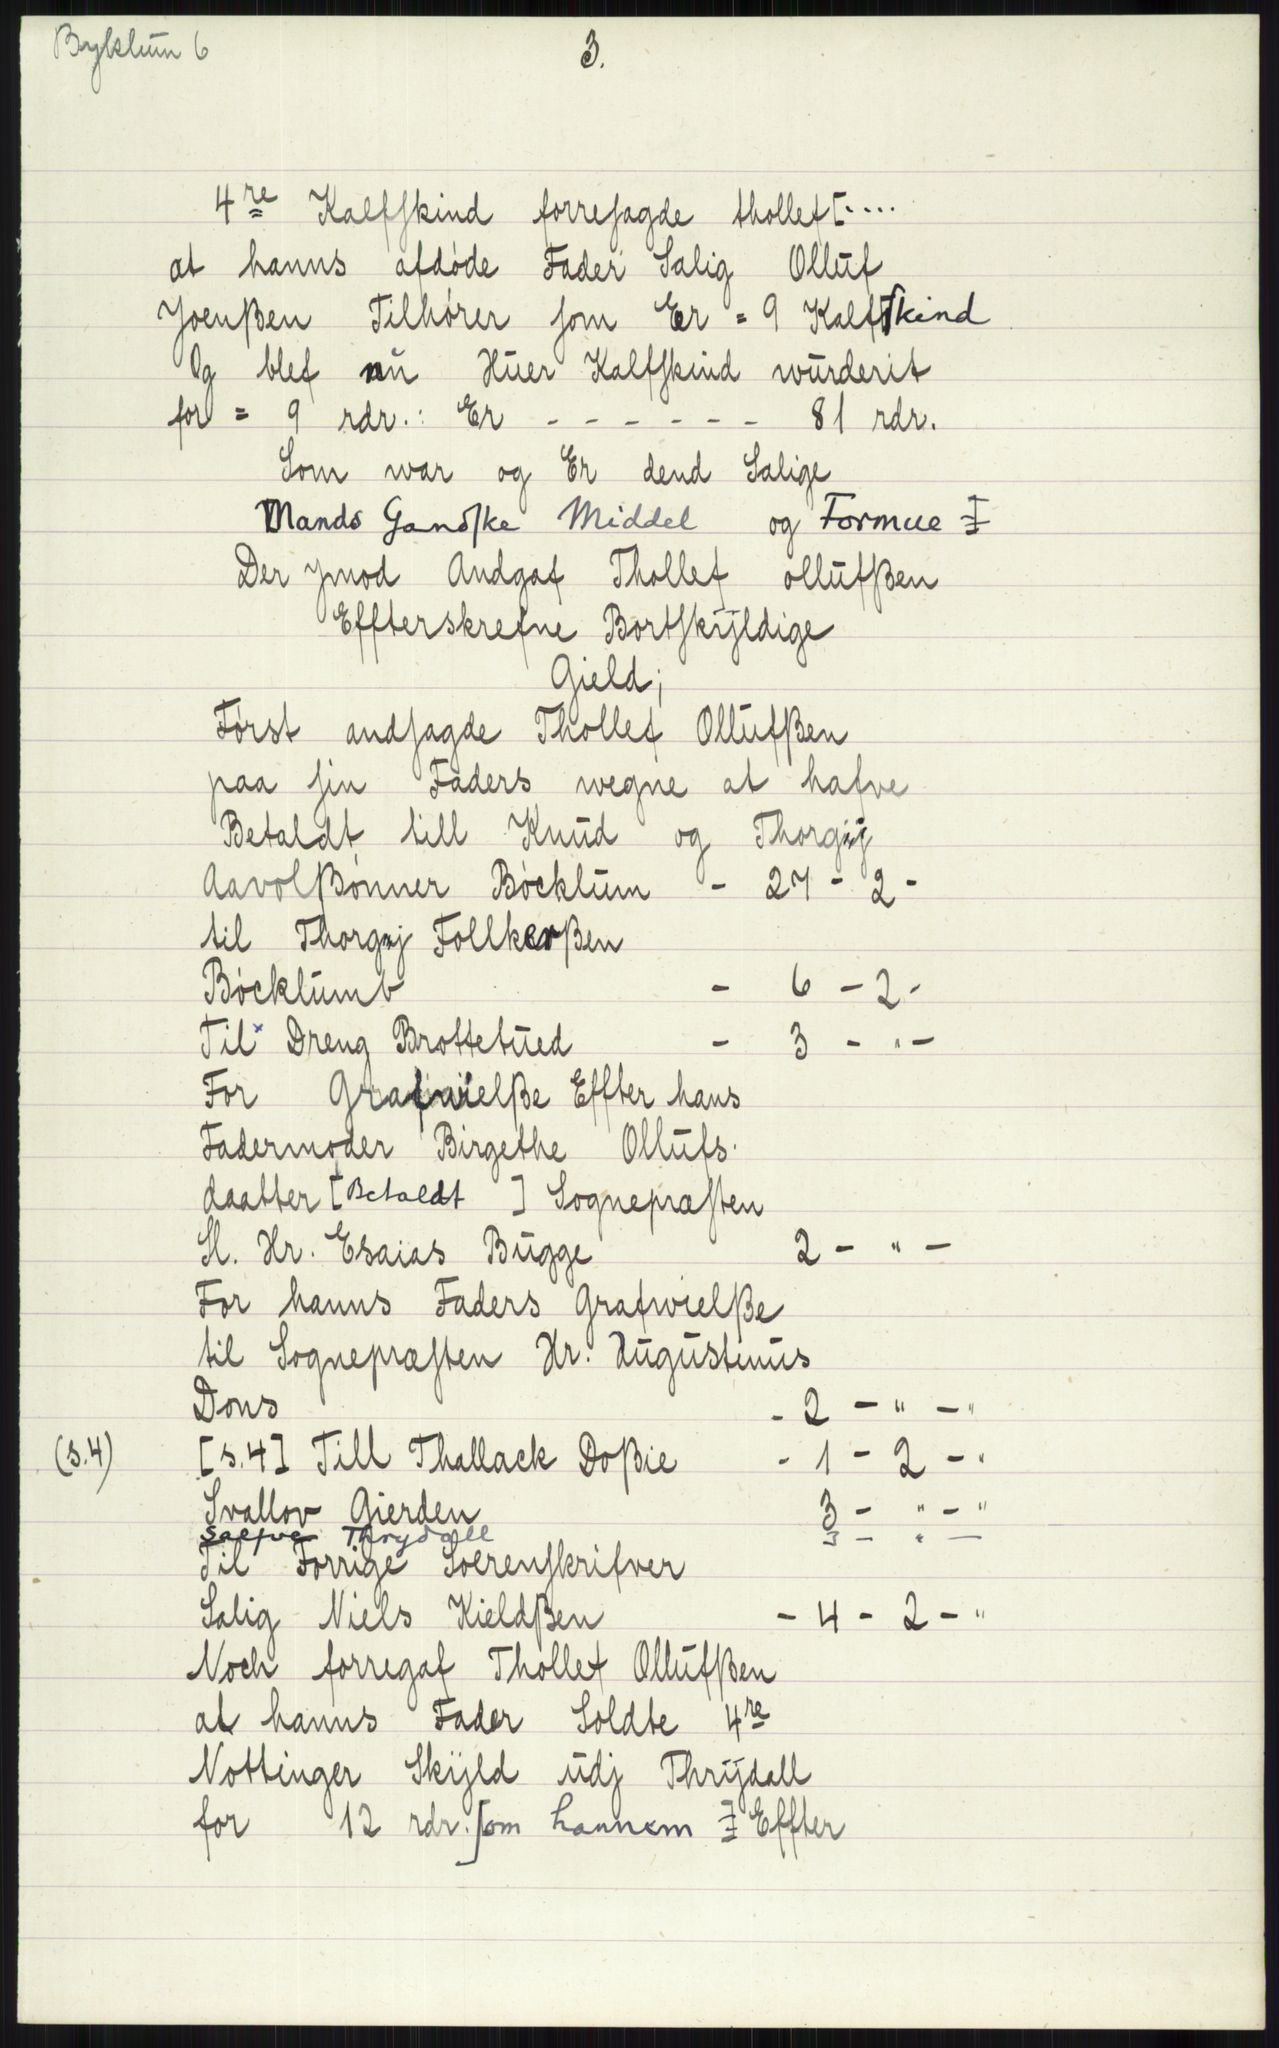 Byklum 6
3.
4re Kalfskind forresagde thollef [....
at hanns afdøde Fader Salig Olluf
Joenßen Tilhører som Er = 9 Kalfskind
Og blef nu Huer Kalfskind wurderit
for = 9 rdr.: Er - - - - - - 81 rdr.
Som war og Er dend Salige
Mands Gandske Middel og Formue
Der ymod Andgaf Thollef ollufßen
Effterskrefne Bortskyldige
Gield;
Først andsagde Thollef Ollufßen
paa sin Faders wegne at hafve
Betaldt till Knud og Thorgij
Aavolßønner Bøcklum - 27 - 2 -
til Thorgij Follkerßen
Bøcklumb - 6 - 2 -
Til x Dreng Brottetued - 3 - " -
For Grafwielße Effter hans
Fadermoder Birgethe Ollufs-
daatter [Betaldt ] Sognepræsten
Sl. Hr. Esaias Bugge 2 - " -
For hanns Faders Grafwielße
til Sognepræsten Hr. Augustinus
Dons - 2 - " - "
(s.4) [s.4] Till Thallack Doßie - 1 - 2 - "
Svallov Gierden 3 - " - "
Saepve Thrydall 3 - " -
Til Forrige Soerenskrifver
Salig Niels Kieldßen - 4 - 2 - "
Noch forregaf Thollef Ollufßen
at hanns Fader Soldte 4re
Nottinger Skyld udj Thrydall
for 12 rdr. som hannem Effter